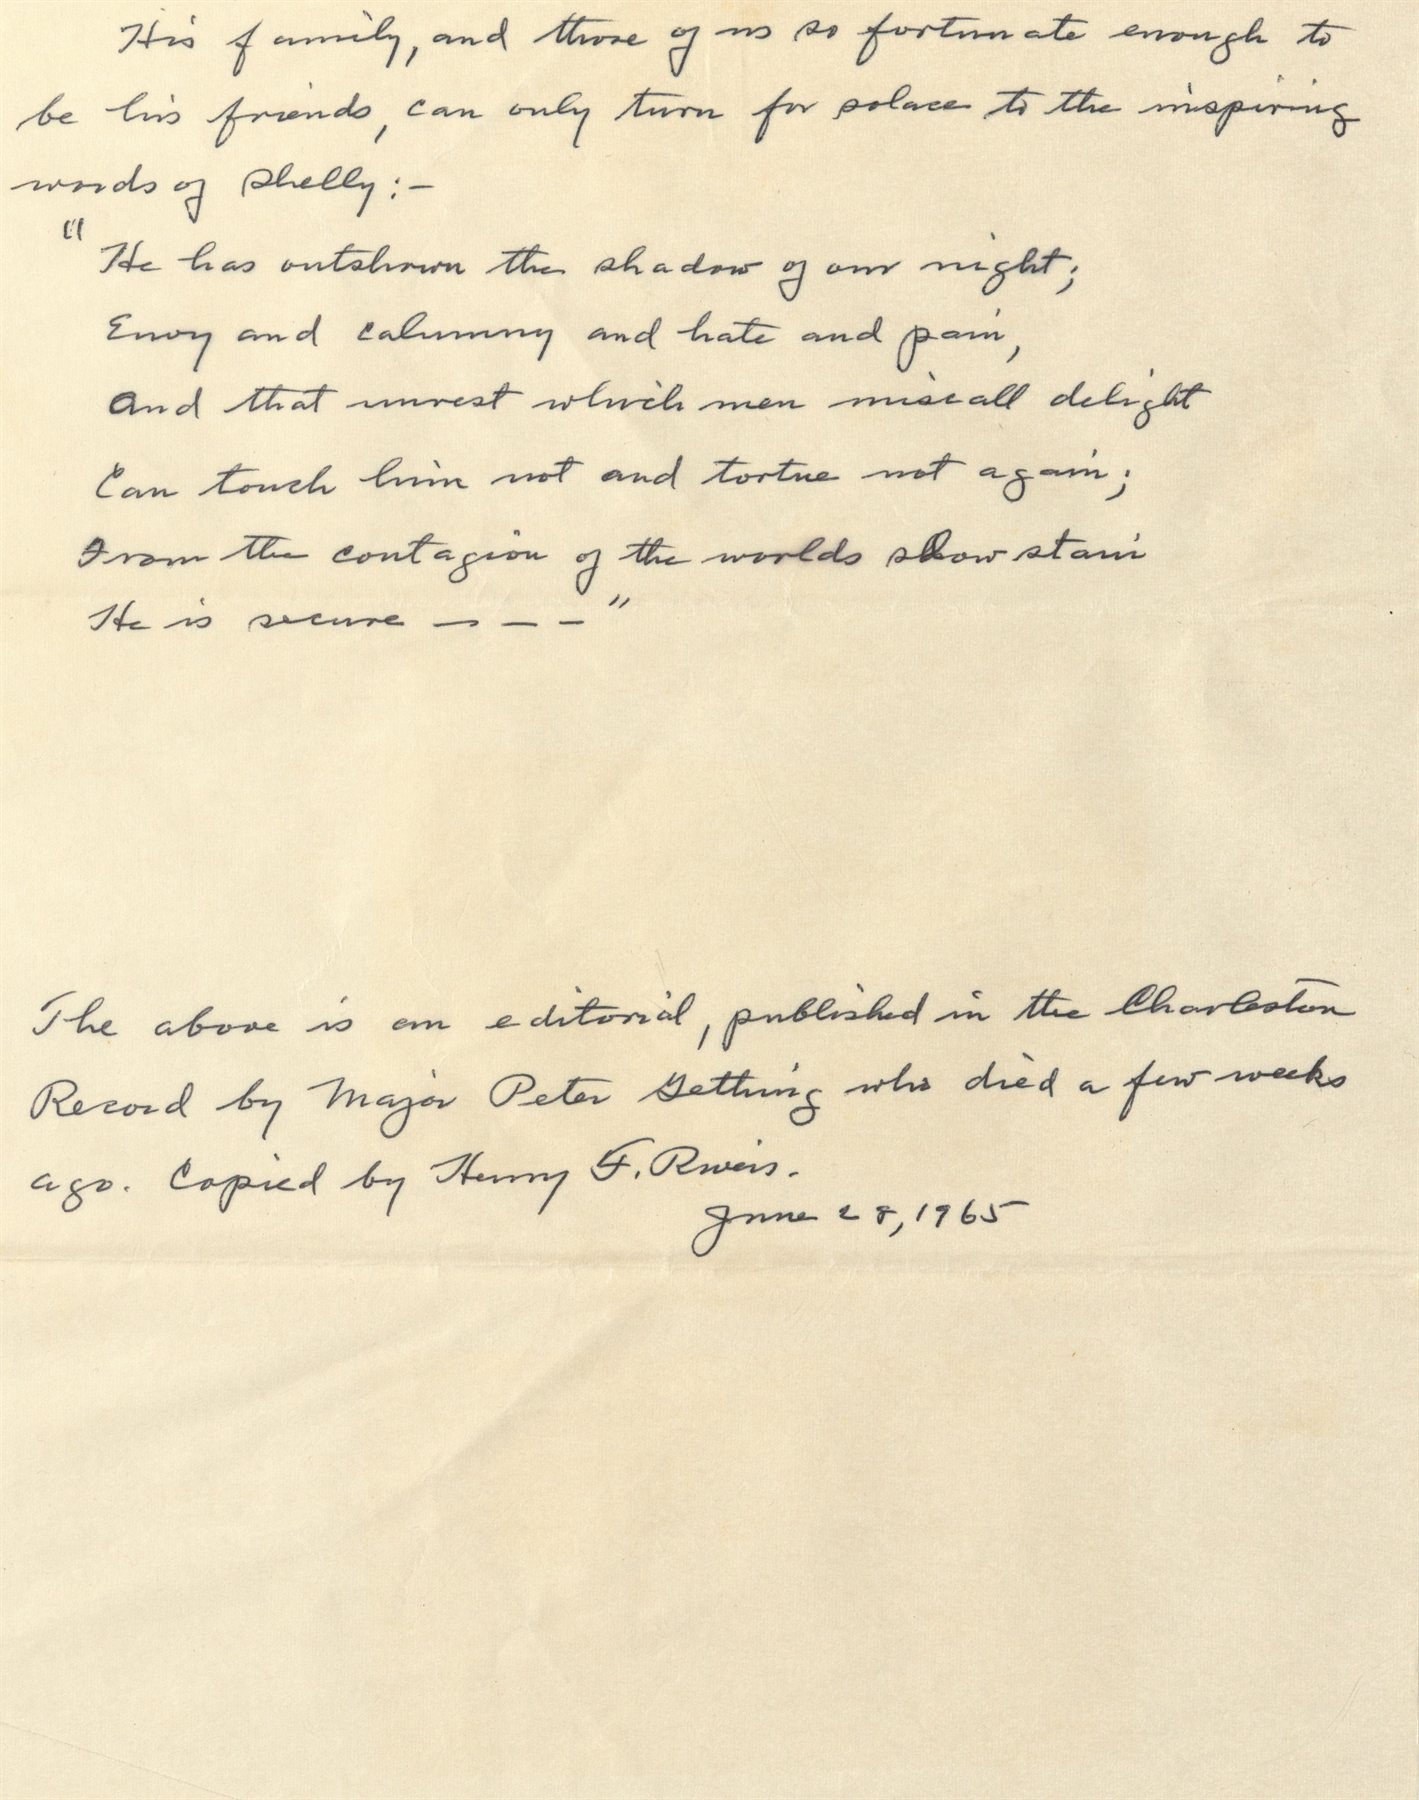 His family, and those of us so fortunate enough to
be his friends, can only turn for solace to the inspiring
words of Shelly:-
"He has outshown the shadow of our night;
Envy and calumny and hate and pain,
And that unrest which men miscall delight
Can touch him not and tortue not again;
From the contagion of the worlds slow stain
He is secure - - - "
The above is an editorial, published in the Charleston
Record by Major Peter Gething who died a few weeks
ago. Copied by Henry F. Rivers.
June 28, 1965